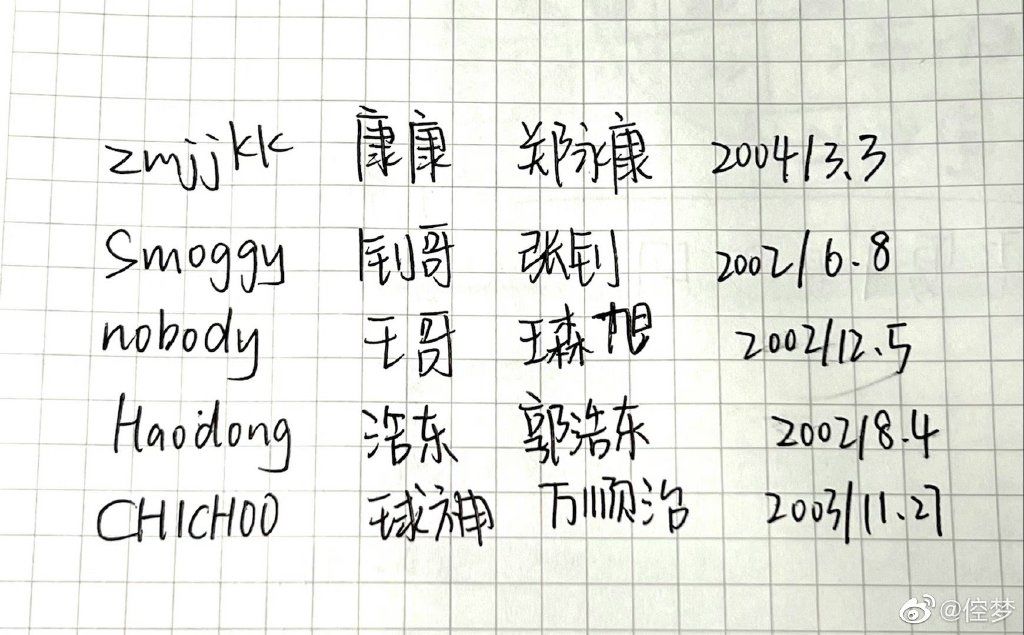 zmjjkk 康康 郑永康 2004/3.3
Smoggy 钊哥 张钊 2002/6.8
nobody 王哥 王森旭 2002/12.5
Haodong 浩东 郭浩东 2002/8.4
CHICHOO 球神 万顺治 2003/11.27
@倥梦